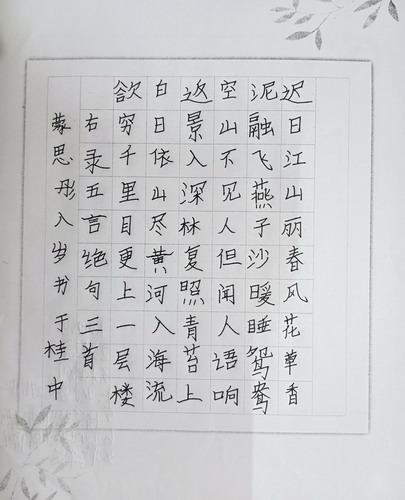 迟日江山丽春风花草香
泥融飞燕子沙暖睡鸳鸯
空山不见人但闻人语响
返景入深林复照青苔上
白日依山尽黄河入海流
欲穷千里目更上一层楼
右录五言绝句三首
蒙思彤入岁书于桂中